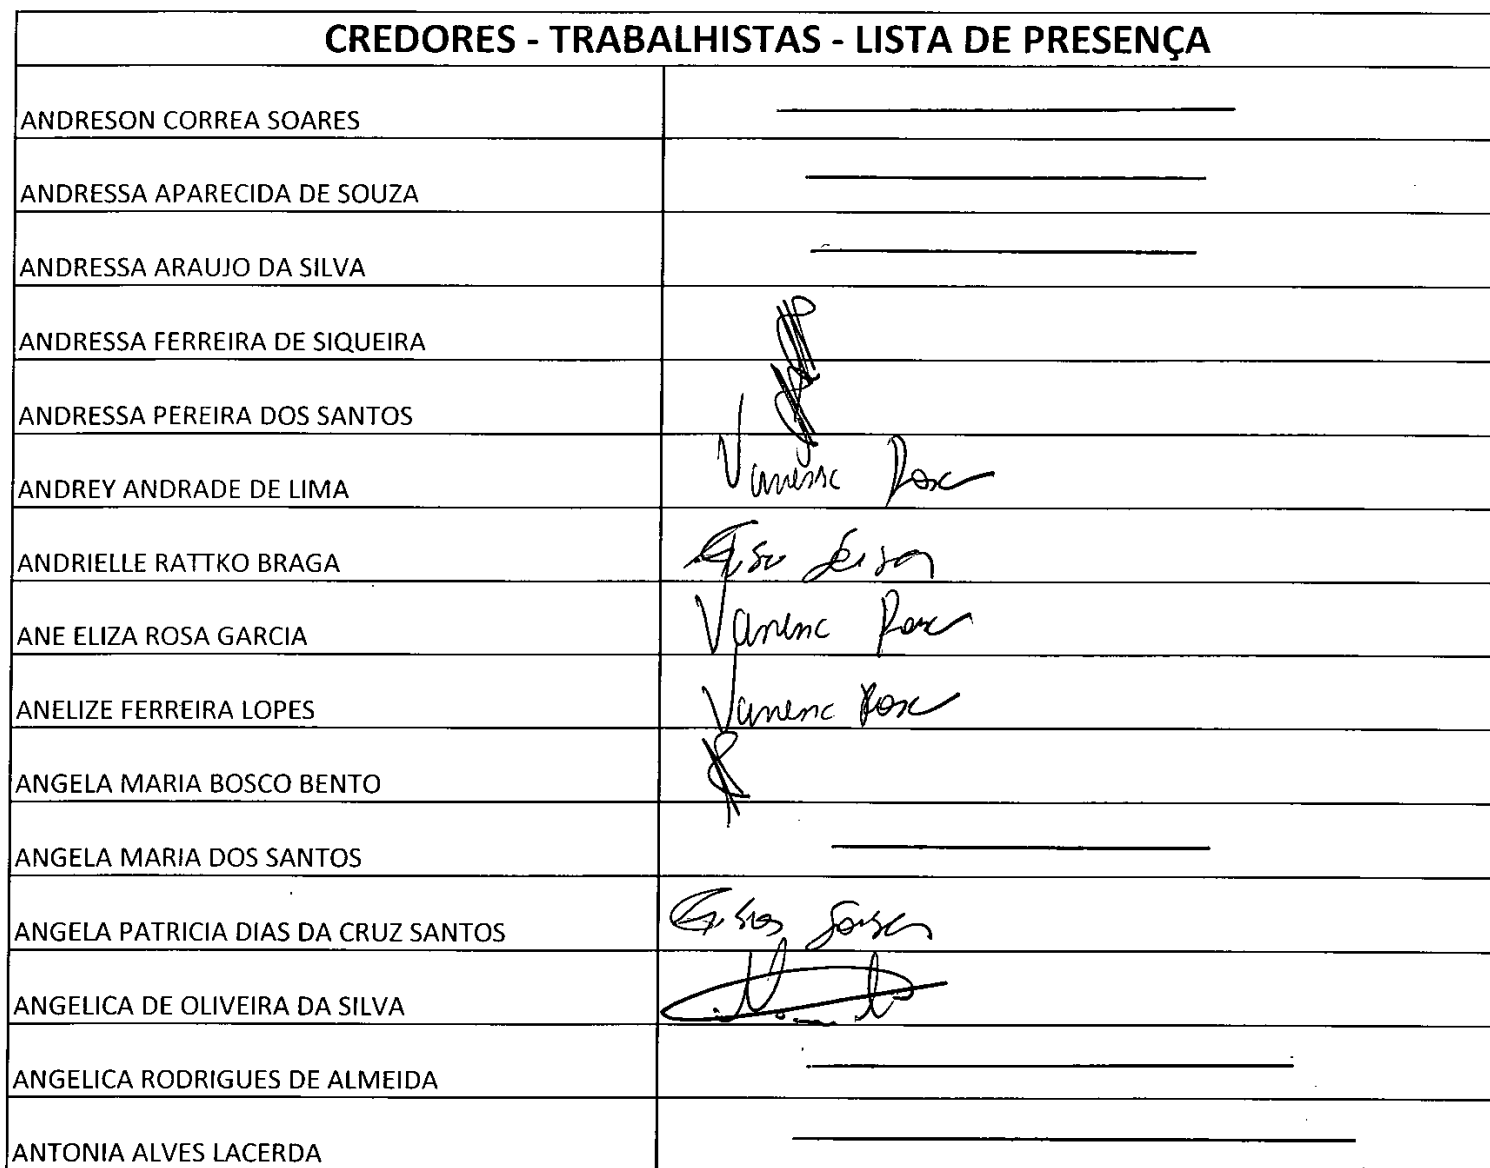 CREDORES - TRABALHISTAS - LISTA DE PRESENÇA
ANDRESON CORREA SOARES
ANDRESSA APARECIDA DE SOUZA
ANDRESSA ARAUJO DA SILVA
ANDRESSA FERREIRA DE SIQUEIRA
ANDRESSA PEREIRA DOS SANTOS
ANDREY ANDRADE DE LIMA Vanessa Rosa
ANDRIELLE RATTKO BRAGA
ANE ELIZA ROSA GARCIA Vanessa Rosa
ANELIZE FERREIRA LOPES Vanessa Rosa
ANGELA MARIA BOSCO BENTO
ANGELA MARIA DOS SANTOS
ANGELA PATRICIA DIAS DA CRUZ SANTOS
ANGELICA DE OLIVEIRA DA SILVA
ANGELICA RODRIGUES DE ALMEIDA
ANTONIA ALVES LACERDA